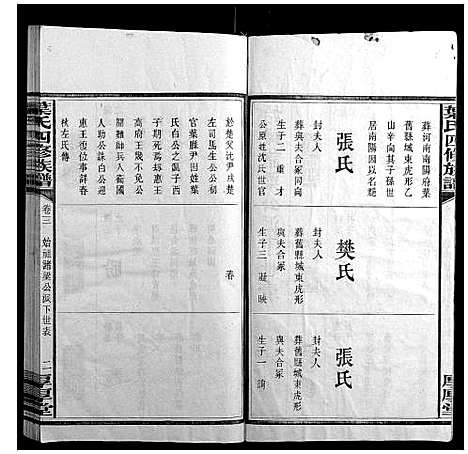 葉氏四修族譜
厚堂
葬河南南陽府葉
舊縣城東虎形乙
山辛向其子孫世
居南陽因以名冠
張氏
封夫人
葬與夫合冢同向
生子二 重 才
公原姓沈氏世官
樊氏
封夫人
葬舊縣城東虎形
與夫合冢
生子三
張氏
封夫人
葬舊縣城東虎形
與夫合冢
生子一 詢
於楚父沈尹戍楚
左司馬生公公初
官葉縣尹因姓葉
氏白公之亂子西
子期死焉刼惠王
高府王幾不免公
聞雅帥兵入衛國
人助公誅白公迎
惠王復位事詳春
秋左氏傳
春
葉氏四修族譜
卷三 始祖諸梁公派下世表
二
厚堂